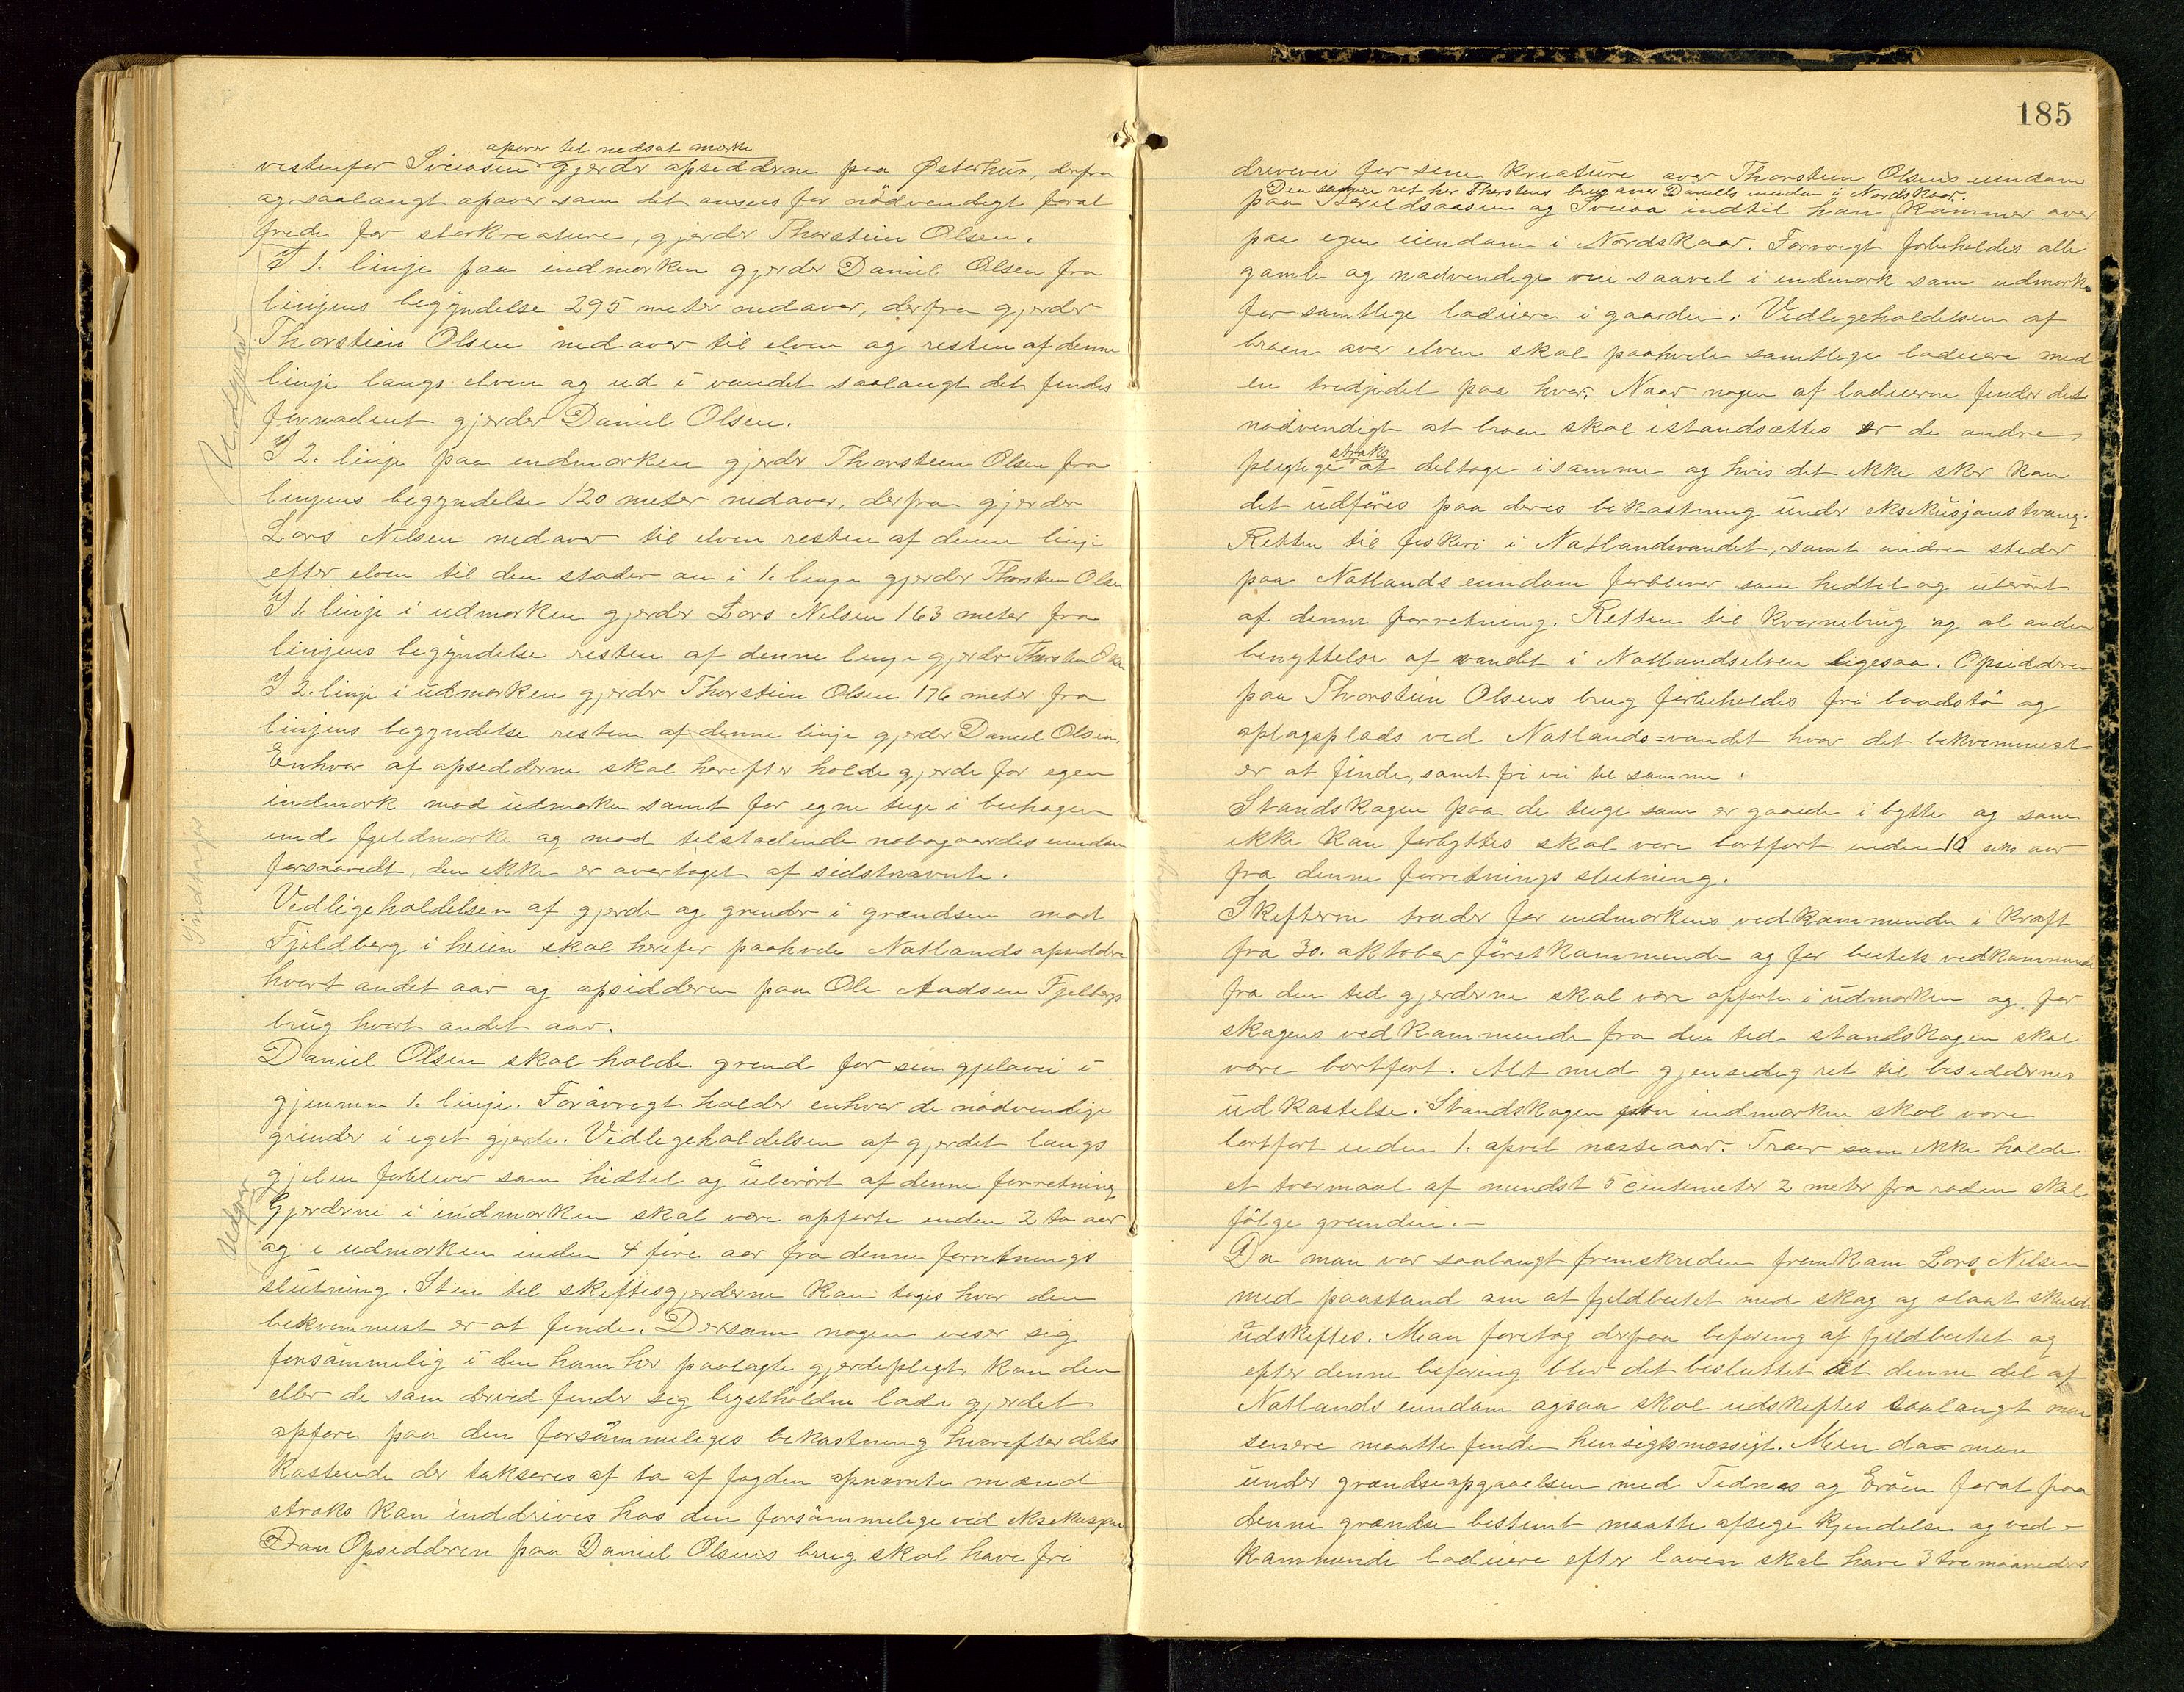 opover til nedsat mærke
vestenfor Sveiaasen gjerder opsidderne paa Østerhus, derfra
og saalangt opover som det ansees for nödvendigt forat
frede for storkreature, gjerder Thorstein Olsen.
I 1. linje paa indmarken gjerder Daniel Olsen fra
linjens begÿndelse 295 meter nedover, derfra gjerder
Thorstein Olsen nedover til elven og resten af denne
linje langs elven og ud i vandet saalangt det findes
fornødent gjerder Daniel Olsen.
I 2. linje paa indmarken gjerder Thorstein Olsen fra
linjens begyndelse 120 meter nedover, derfra gjerder
Lars Nilsen nedover til elven resten af denne linje
efter elven til den støder an i 1. linje gjerder Thorstein Olsen
I 1. linje i udmarken gjerder Lars Nilsen 163 meter fra
linjens begÿndelse resten af denne linje gjerder Thorstein Olsen
I 2. linje i udmarken gjerder Thorstein Olsen 176 meter fra
linjens begyndelse resten af denne linje gjerder Daniel Olsen.
Enhver af opsidderne skal herefter holde gjerde for egen
indmark mod udmarken samt for egne teige i buhagen
imd fjeldmarke og mod tilstødende nabogaardes eiendom
forsaavidt, den ikke er overtaget af sidstnævnte.
Vedligeholdelsen af gjerde og grinder i grændsen mod
Fjeldberg i heien skal herefter paahvile Natlands opsiddere
hvert andet aar og opsidderen paa Ole Aadsen Fjelbergs
brug hvert andet aar.
Daniel Olsen skal holde grind for sin gjelavei i
gjennem 1. linje. Forövrigt holder enhver de nödvendige
grinder i eget gjerde. Vedligeholdelsen af gjerdet langs
gjelen forbliver som hidtil og uberört af denne forretning
Gjerderne i indmarken skal være opførte inden 2 to aar
og i udmarken inden 4 fire aar fra denne forretnings
slutning. Sten til skiftesgjerderne kan tages hvor den
bekvemmest er at finde. Dersom nogen viser sig
forsömmelig i den ham her paalagte gjerdepligt kan den
eller de som derved finder sig brystholdne lade gjerdet
opføre paa den forsömmeliges bekostning hvorefter dets
kostende der takseres af to af fogden opnævnte mænd
straks kan inddrives hos den forsömmelige ved eksekusjon
Dan Opsidderen paa Daniel Olsens brug skal have fri
Vedgjerder
Gjerdhøjer
Vedgjer
185
drivevei for sine kreature over Thorstein Olsens eiendom
Den samme ret har Thorsteins brug over Daniels eiendom i Nordskaar.
paa Bereldsaasen og Sveiaa indtil han kommer over
paa egen eiendom i Nordskaar. Forøvrigt forbeholdes alle
gamle og nødvendige veie saavel i indmark som udmark
for samtlige lodeiere i gaarden. Vedligeholdelsen af
broen over elven skal paahvile samtlige lodeiere med
en tredjedel paa hver. Naar nogen af lodeierne finder det
nödvendigt at broen skal istandsættes er de andre
straks
pligtige at deltage i samme og hvis det ikke sker kan
det udföres paa deres bekostning under eksekusjonstvang.
Retten til fiskeri i Natlandsvandet, samt andre steder
paa Natlands eiendom forbliver som hidtil og uberört
af denne forretning. Retten til kvernebrug og al anden
benyttelse af vandet i Natlandselven ligesaa. Opsidderen
paa Thorstein Olsens brug forbeholdes fri baadstö og
oplagsplads ved Natlands=vandet hvor det bekvemmest
er at finde, samt fri vei til samme.
Standskogen paa de teige som er gaaede i bytte og som
ikke kan forbyttes skal være bortført inden 10 aar
fra denne forretnings slutning.
Skifterne træder for indmarkens vedkommende i kraft
fra 30. oktober förstkommende og for beitets vedkommende
fra den tid gjerderne skal være opførte i udmarken og for
skogens vedkommende fra den tid standskogen skal
være bortført. Alt med gjensidig ret til besiddernes
udkastelse. Standskogen paa indmarken skal være
bortført inden 1. april næsteaar. Træer som ikke holde
et tvermaal af mindst 5 centimeter 2 meter fra roden skal
fölge grunden. —
Da man var saalangt fremskreden fremkom Lars Nilsen
med paastand om at fjeldbeitet med skog og slaat skulde
udskiftes. Man foretog derpaa befaring af fjeldbeitet og
efter denne befaring blev det besluttet at denne del af
Natlands eiendom ogsaa skal udskiftes saalangt man
senere maatte finde hensigtsmæssigt. Men da man
under grændseopgaaelsen med Tednes og Eröen forat paa
denne grændse bestemt maatte afsige kjendelse og ved-
kommende lodeiere efter loven skal have 3 tre maaneders